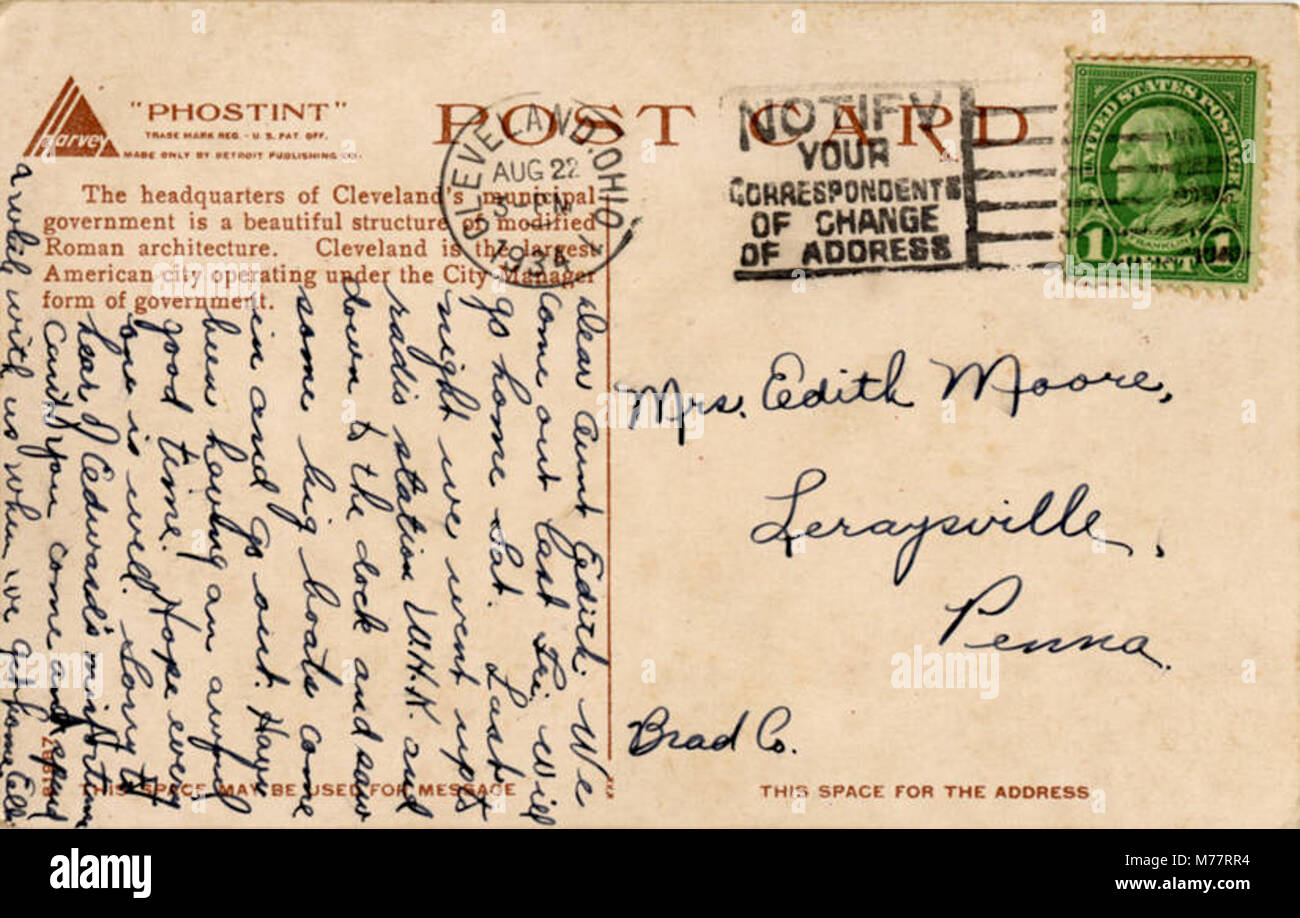 "PHOSTINT"
TRADE MARK REG. - U.S. PAT. OFF.
Harvey
MADE ONLY BY DETROIT PUBLISHING CO.
POST CARD
CLEVELAND, OHIO
AUG 22
3 PM
NOTIFY
YOUR
CORRESPONDENTS
OF CHANGE
OF ADDRESS
UNITED STATES POSTAGE
FRANKLIN
1 1
The headquarters of Cleveland's municipal
government is a beautiful structure of modified
Roman architecture. Cleveland is the largest
American city operating under the City Manager
form of government.
Dear Aunt Edith: We
come out last Fri. Will
go home Sat. Last
night we went up to
radio station W.H.K. and
down to the dock and saw
some big boats come
in and go out. Have
been having an awful
good time. Hope every
one is well. Sorry to
hear of Edward's misfortune
Can't you come and spend
a while with us when we get home
Mrs. Edith Moore,
Leraysville,
Penna.
Brad Co.
THIS SPACE MAY BE USED FOR MESSAGE
THIS SPACE FOR THE ADDRESS
alamy
Image ID: M77RR4
www.alamy.com